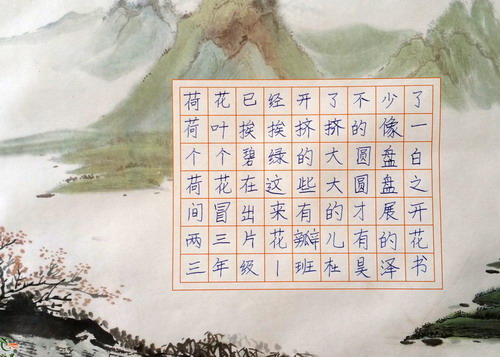 荷花已经开了不少了
荷叶挨挨挤挤的像一
个个碧绿的大圆盘白
荷花在这些大圆盘之
间冒出来有的才展开
两三片花瓣儿有的花
三年级1班杜昊泽书